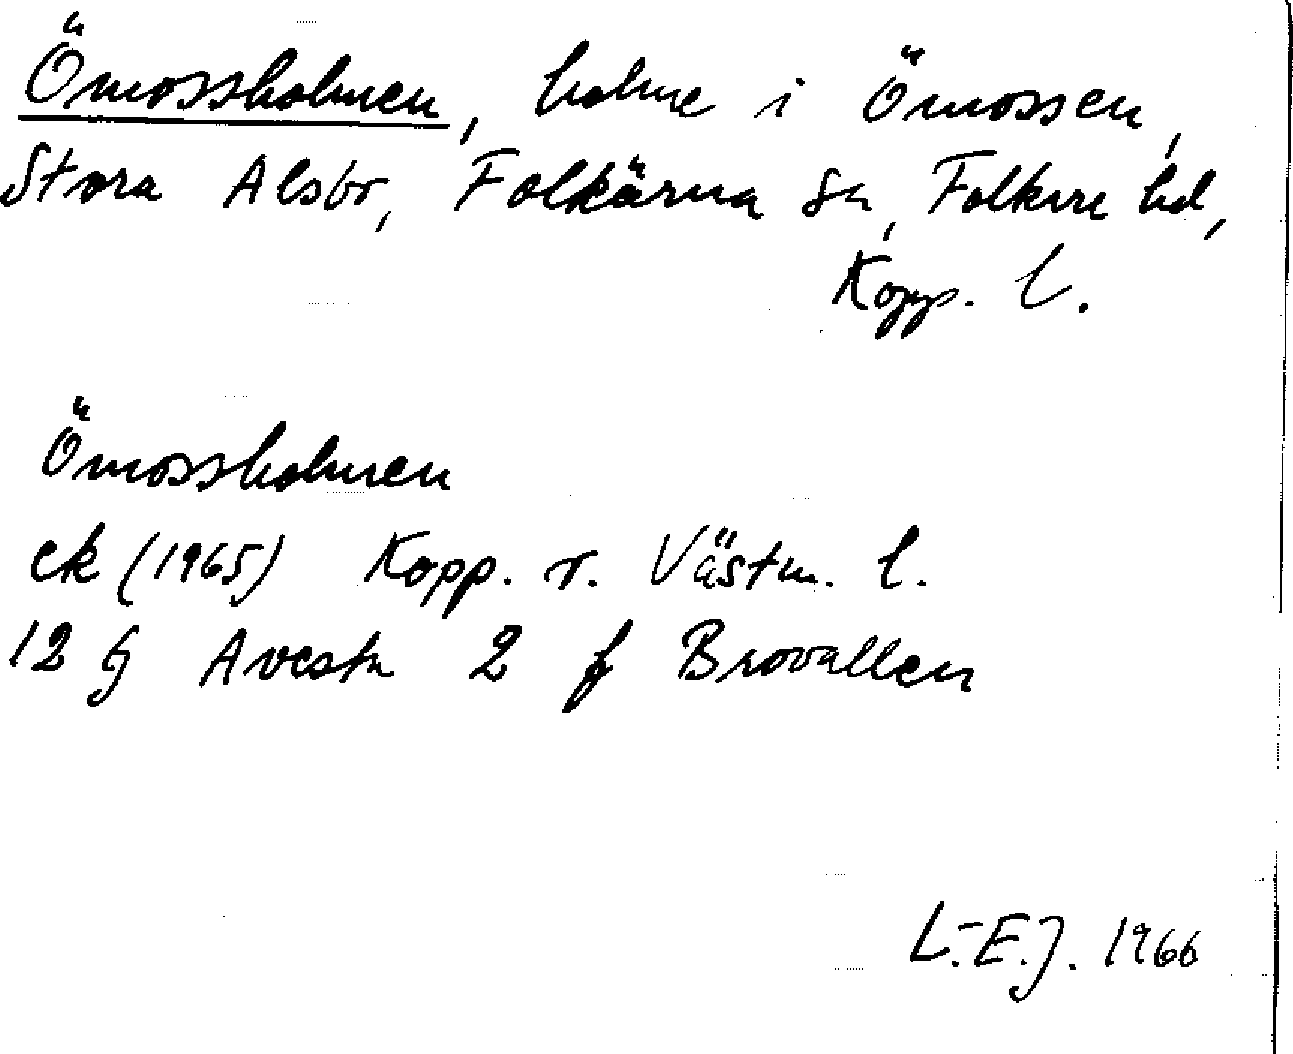 Ömossholmen, holme i Ömossen,
Stora Alsbo, Folkärna sn, Folkare hd,
Kopp. l.
Ömossholmen
ek (1965) Kopp. o. Västm. l.
12 G Avesta 2 f Brovallen
L.-E.J. 1966